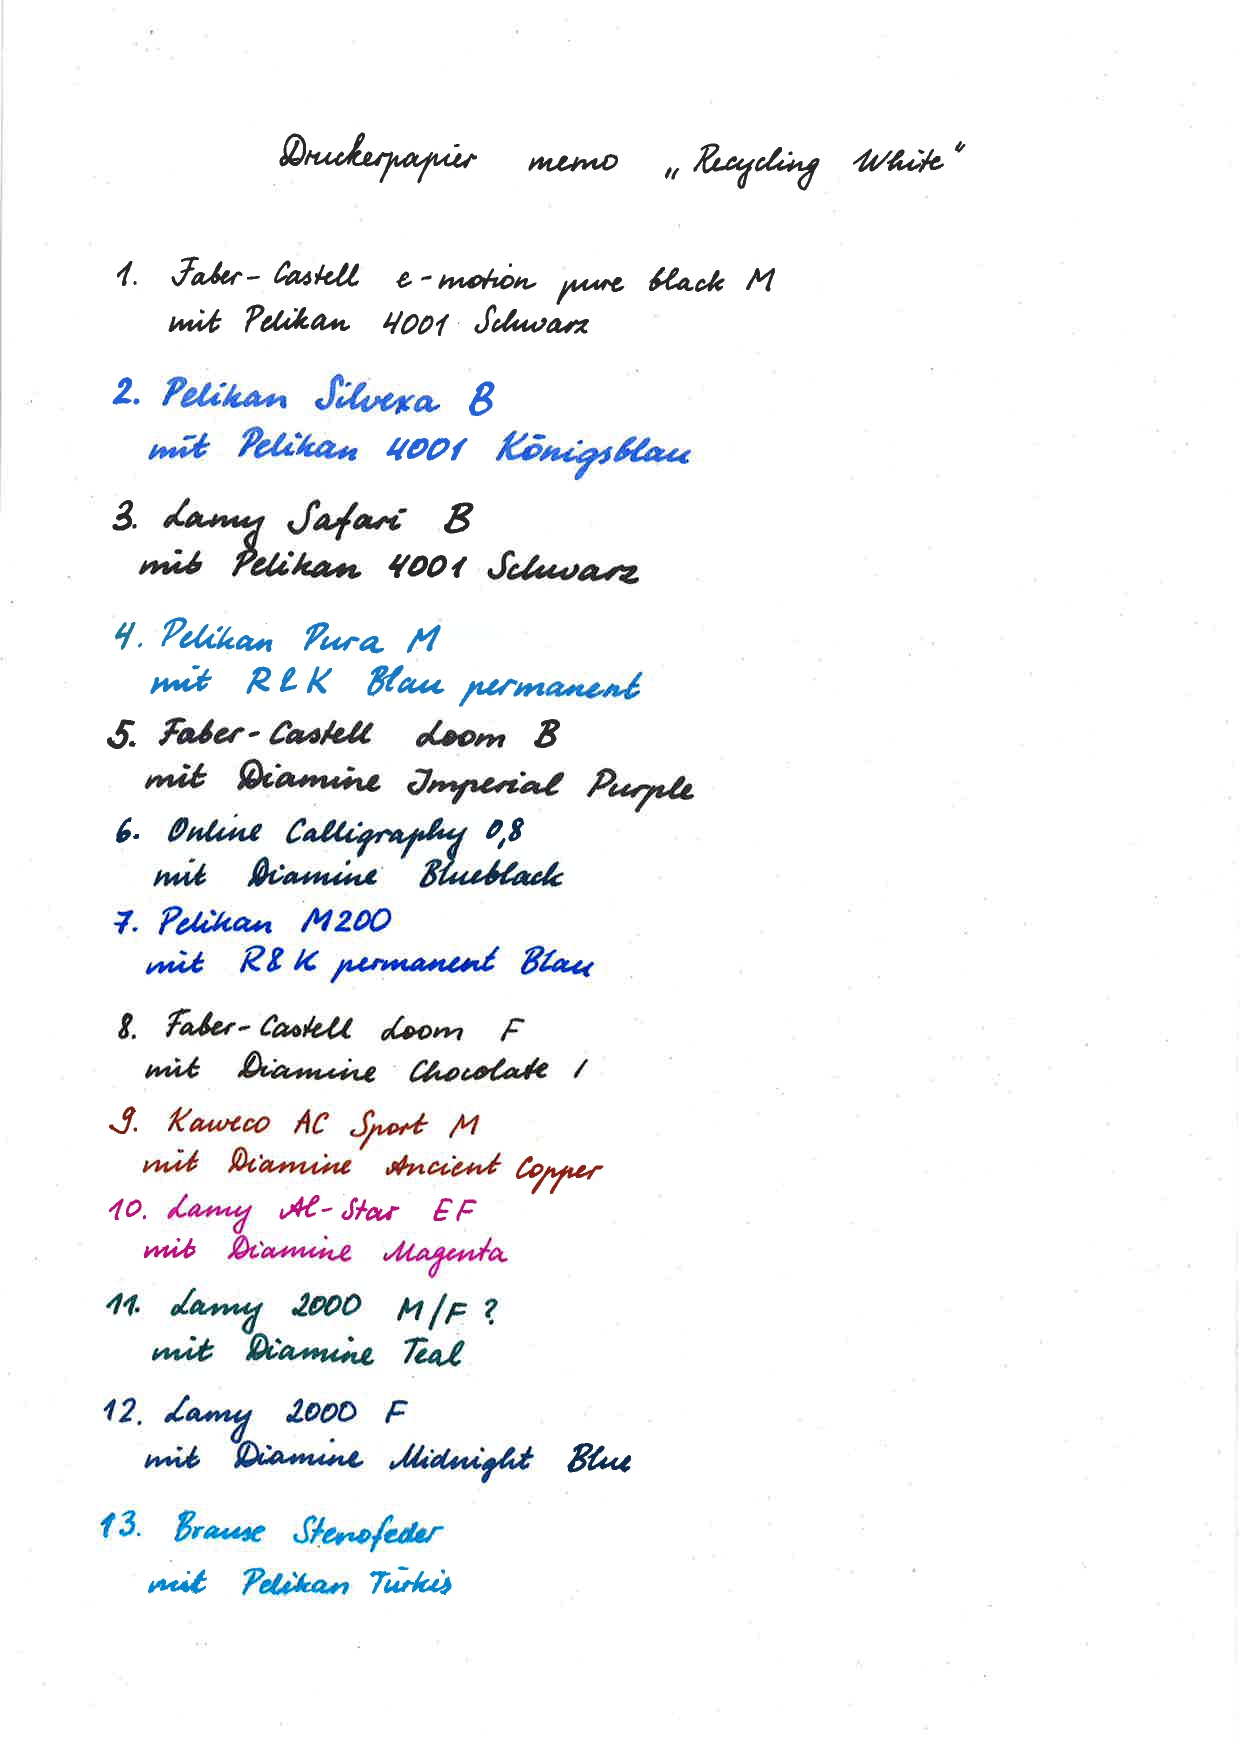 Druckerpapier memo „Recycling White“
1. Faber-Castell e-motion pure black M
mit Pelikan 4001 Schwarz
2. Pelikan Silvexa B
mit Pelikan 4001 Königsblau
3. Lamy Safari B
mit Pelikan 4001 Schwarz
4. Pelikan Pura M
mit R&K Blau permanent
5. Faber-Castell Loom B
mit Diamine Imperial Purple
6. Online Calligraphy 0,8
mit Diamine Blueblack
7. Pelikan M200
mit R&K permanent Blau
8. Faber-Castell Loom F
mit Diamine Chocolate /
9. Kaweco AC Sport M
mit Diamine Ancient Copper
10. Lamy Al-Star EF
mit Diamine Magenta
11. Lamy 2000 M/F?
mit Diamine Teal
12. Lamy 2000 F
mit Diamine Midnight Blue
13. Brause Stenofeder
mit Pelikan Türkis